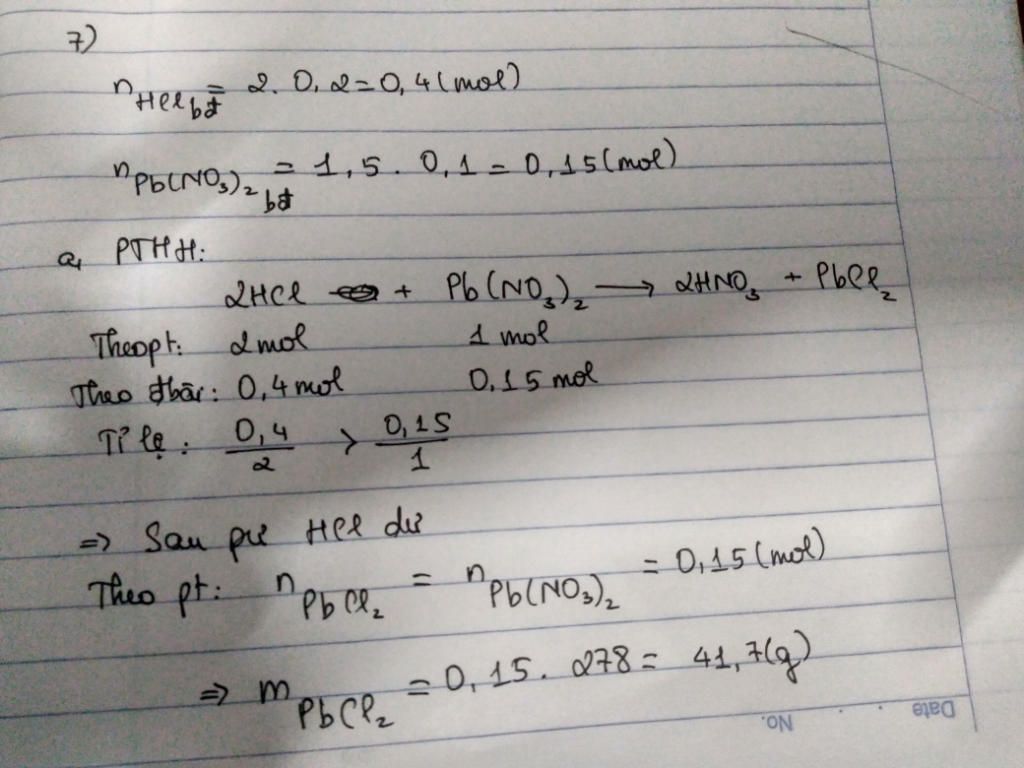 7)
n HCl bđ = 2. 0,2 = 0,4 (mol)
n Pb(NO₃)₂ bđ = 1,5. 0,1 = 0,15 (mol)
a, PTHH:
2HCl + Pb(NO₃)₂ → 2HNO₃ + PbCl₂
Theo pt: 2mol 1 mol
Theo đbài: 0,4 mol 0,15 mol
Tỉ lệ: 0,4/2 > 0,15/1
=> Sau pư HCl dư
Theo pt: n PbCl₂ = n Pb(NO₃)₂ = 0,15 (mol)
=> m PbCl₂ = 0,15. 278 = 41,7(g)
No. Date